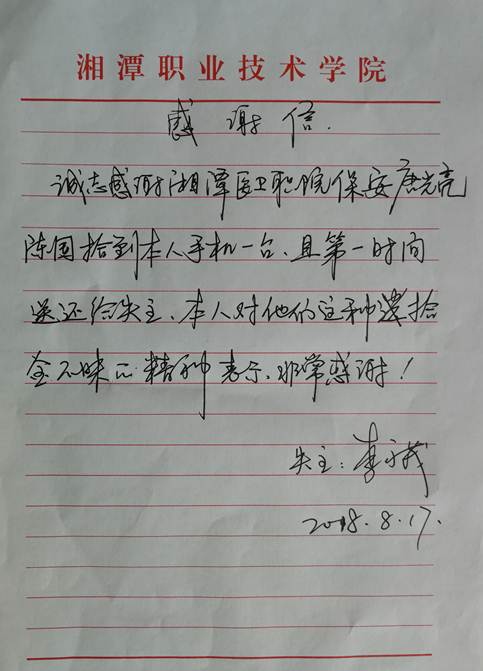 湘潭职业技术学院
感谢信.
诚志感谢湘潭医卫职院保安唐光亮
陈国拾到本人手机一台、且第一时间
送还给失主、本人对他们这种
金不昧的精神表示、非常感谢！
失主：李
2018.8.17.